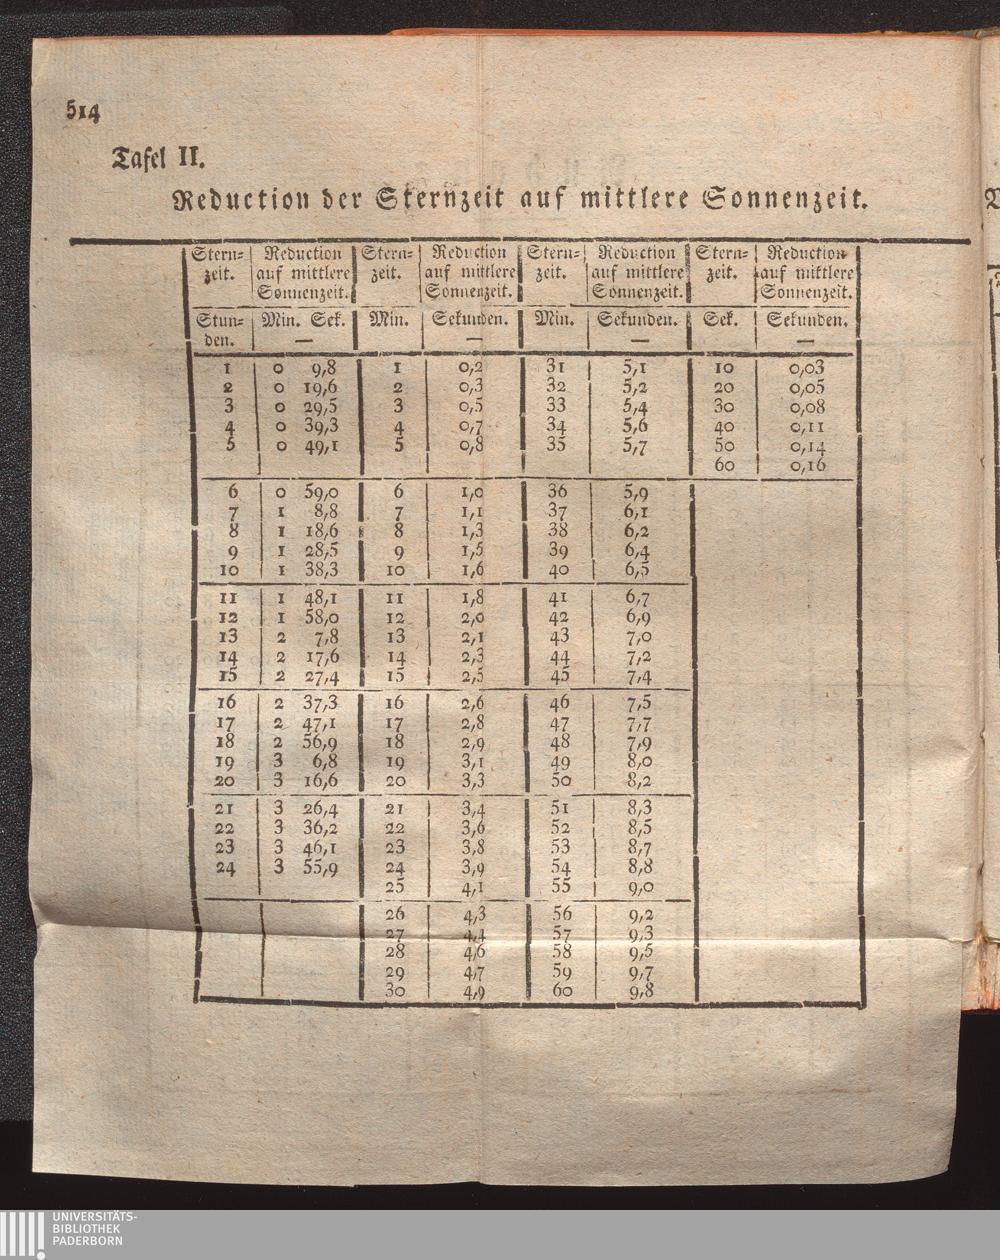 514
Tafel II.
Reduction der Sternzeit auf mittlere Sonnenzeit.
Stern= Reduction Stern= Reduction Stern= Reduction Stern= Reduction
zeit. auf mittlere zeit. auf mittlere zeit. auf mittlere zeit. auf mittlere
Sonnenzeit. Sonnenzeit. Sonnenzeit. Sonnenzeit.
Stun= Min. Sek. Min. Sekunden. Min. Sekunden. Sek. Sekunden.
den. — — — —
1 0 9,8 1 0,2 31 5,1 10 0,03
2 0 19,6 2 0,3 32 5,2 20 0,05
3 0 29,5 3 0,5 33 5,4 30 0,08
4 0 39,3 4 0,7 34 5,6 40 0,11
5 0 49,1 5 0,8 35 5,7 50 0,14
60 0,16
6 0 59,0 6 1,0 36 5,9
7 1 8,8 7 1,1 37 6,1
8 1 18,6 8 1,3 38 6,2
9 1 28,5 9 1,5 39 6,4
10 1 38,3 10 1,6 40 6,5
11 1 48,1 11 1,8 41 6,7
12 1 58,0 12 2,0 42 6,9
13 2 7,8 13 2,1 43 7,0
14 2 17,6 14 2,3 44 7,2
15 2 27,4 15 2,5 45 7,4
16 2 37,3 16 2,6 46 7,5
17 2 47,1 17 2,8 47 7,7
18 2 56,9 18 2,9 48 7,9
19 3 6,8 19 3,1 49 8,0
20 3 16,6 20 3,3 50 8,2
21 3 26,4 21 3,4 51 8,3
22 3 36,2 22 3,6 52 8,5
23 3 46,1 23 3,8 53 8,7
24 3 55,9 24 3,9 54 8,8
25 4,1 55 9,0
26 4,3 56 9,2
27 4,4 57 9,3
28 4,6 58 9,5
29 4,7 59 9,7
30 4,9 60 9,8
UNIVERSITÄTS-
BIBLIOTHEK
PADERBORN